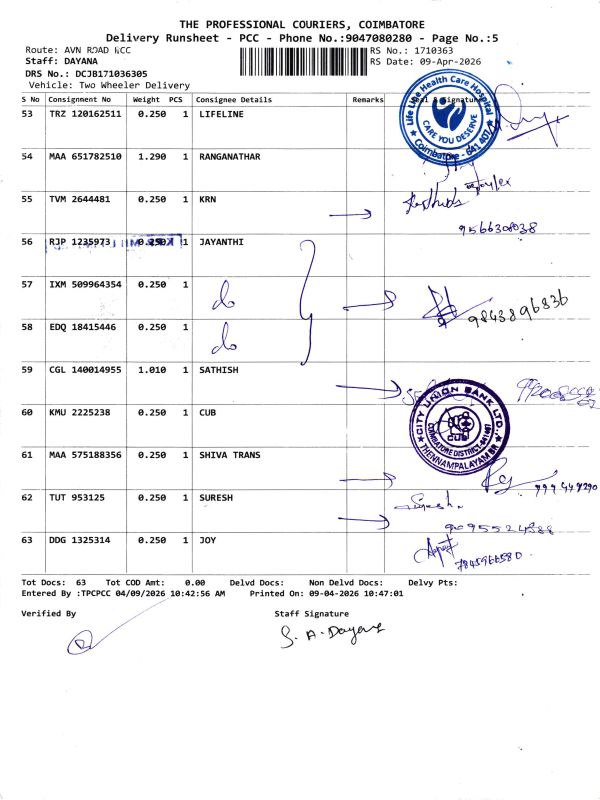 THE PROFESSIONAL COURIERS, COIMBATORE
Delivery Runsheet - PCC - Phone No.:9047080280 - Page No.:5
Route: AVN ROAD NCC
RS No.: 1710363
Staff: DAYANA
RS Date: 09-Apr-2026
DRS No.: DCJB171036305
Vehicle: Two Wheeler Delivery
S No Consignment No Weight PCS Consignee Details Remarks Seal & Signature
53 TRZ 120162511 0.250 1 LIFELINE
Life Line Health Care Hospital
CARE YOU DESERVE
Coimbatore - 641 407
54 MAA 651782510 1.290 1 RANGANATHAR
55 TVM 2644481 0.250 1 KRN
9566308038
56 RJP 1235973 0.250 1 JAYANTHI
57 IXM 509964354 0.250 1 do
9843896836
58 EDQ 18415446 0.250 1 do
59 CGL 140014955 1.010 1 SATHISH
60 KMU 2225238 0.250 1 CUB
CITY UNION BANK LTD.,
CUB
COIMBATORE DISTRICT-641407
THENNAMPALAYAM BR
61 MAA 575188356 0.250 1 SHIVA TRANS
62 TUT 953125 0.250 1 SURESH
Suresh
63 DDG 1325314 0.250 1 JOY
7845966580
Tot Docs: 63 Tot COD Amt: 0.00 Delvd Docs: Non Delvd Docs: Delvy Pts:
Entered By :TPCPCC 04/09/2026 10:42:56 AM Printed On: 09-04-2026 10:47:01
Verified By Staff Signature
S. A. Dayana